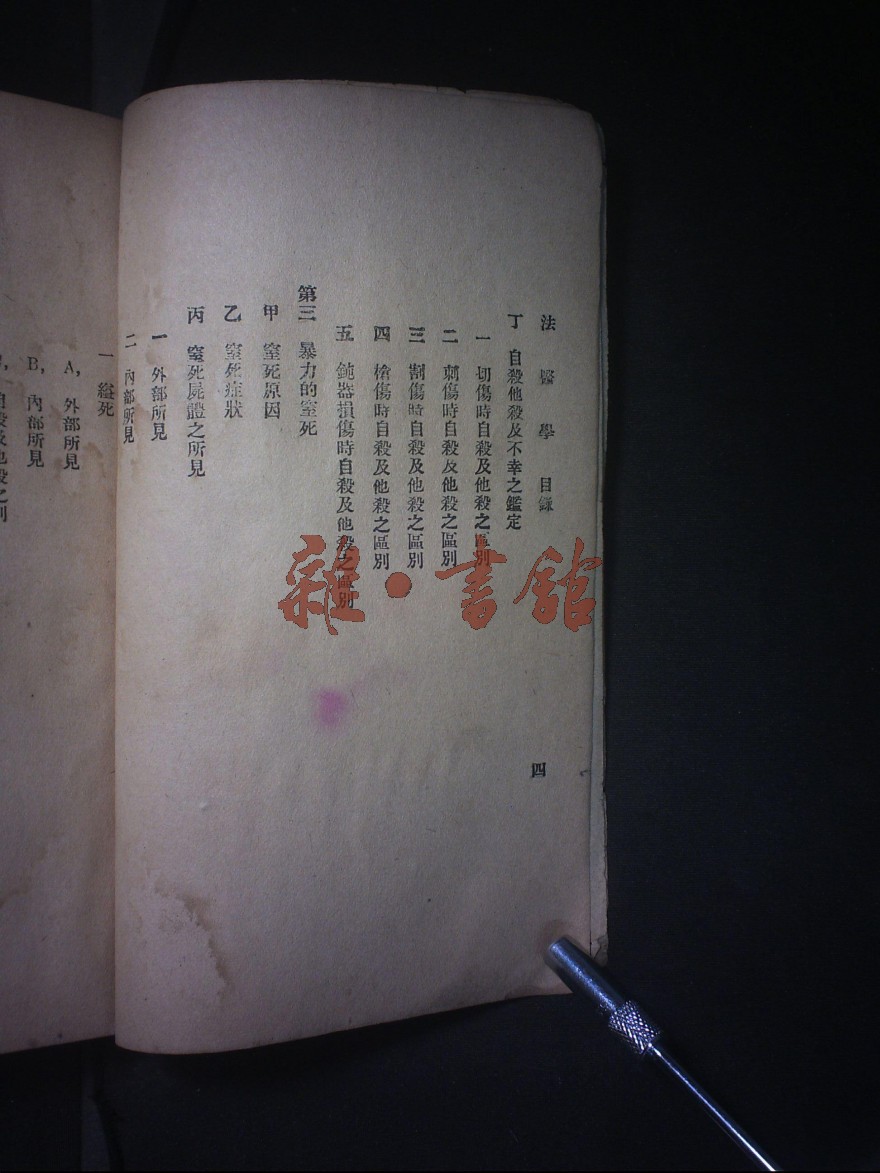 法醫學 目錄
四
丁 自殺他殺及不幸之鑑定
一 切傷時自殺及他殺之區別
二 刺傷時自殺及他殺之區別
三 割傷時自殺及他殺之區別
四 槍傷時自殺及他殺之區別
五 鈍器損傷時自殺及他殺之區別
第三 暴力的窒死
甲 窒死原因
乙 窒死症狀
丙 窒死屍體之所見
一 外部所見
二 內部所見
一 縊死
A, 外部所見
B, 內部所見
自殺及他殺之別
雜·書館